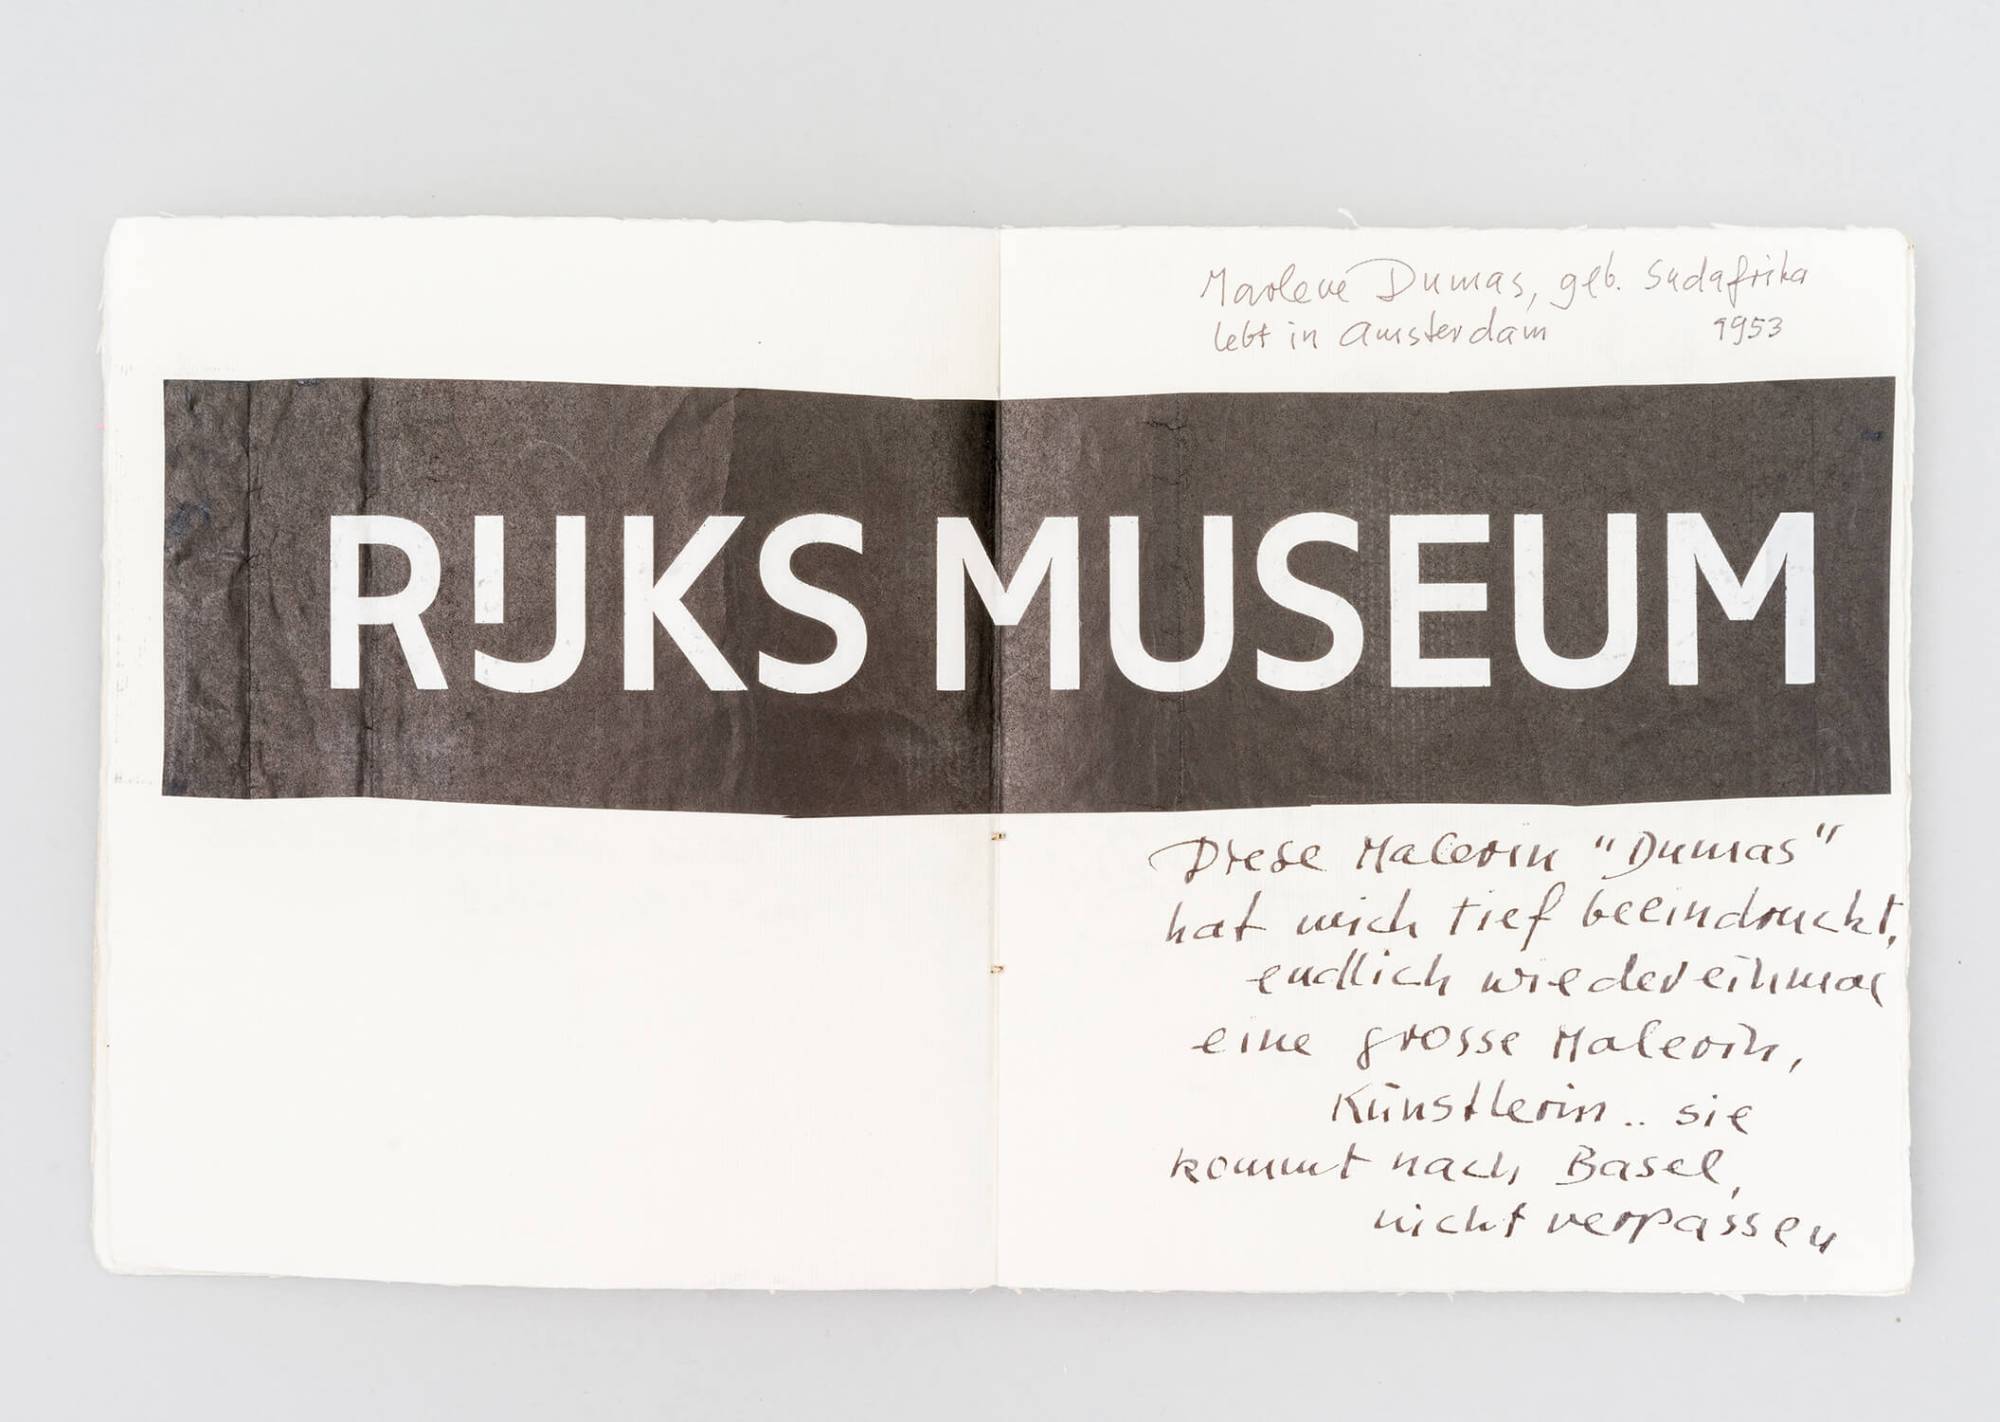 Marlene Dumas, geb. Südafrika
lebt in Amsterdam 1953
RIJKS MUSEUM
Diese Malerin "Dumas"
hat mich tief beeindruckt,
endlich wiedereinmal
eine grosse Malerin,
Künstlerin.. sie
kommt nach Basel,
nicht verpassen